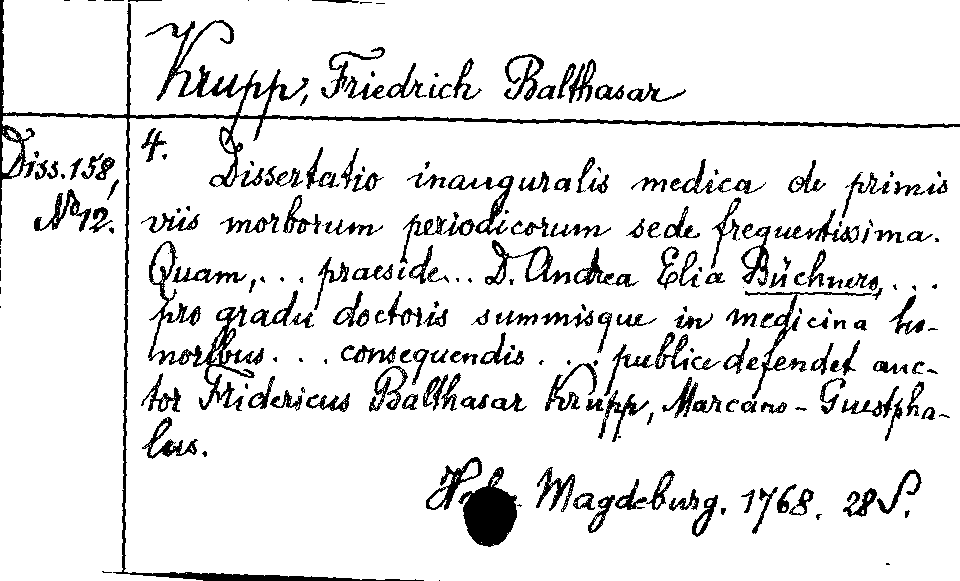 Krupp, Friedrich Balthasar
Diss. 158,
No 12.
4.
Dissertatio inauguralis medica de primis
viis morborum periodicorum sede frequentissima.
Quam, ... praeside... D. Andrea Elia Büchnero, ...
pro gradu doctoris summisque in medicina ho-
noribus ... consequendis ... publice defendet auc-
tor Fridericus Balthasar Krupp, Marcano-Guestpha-
lus.
Magdeburg. 1768. 28 S.